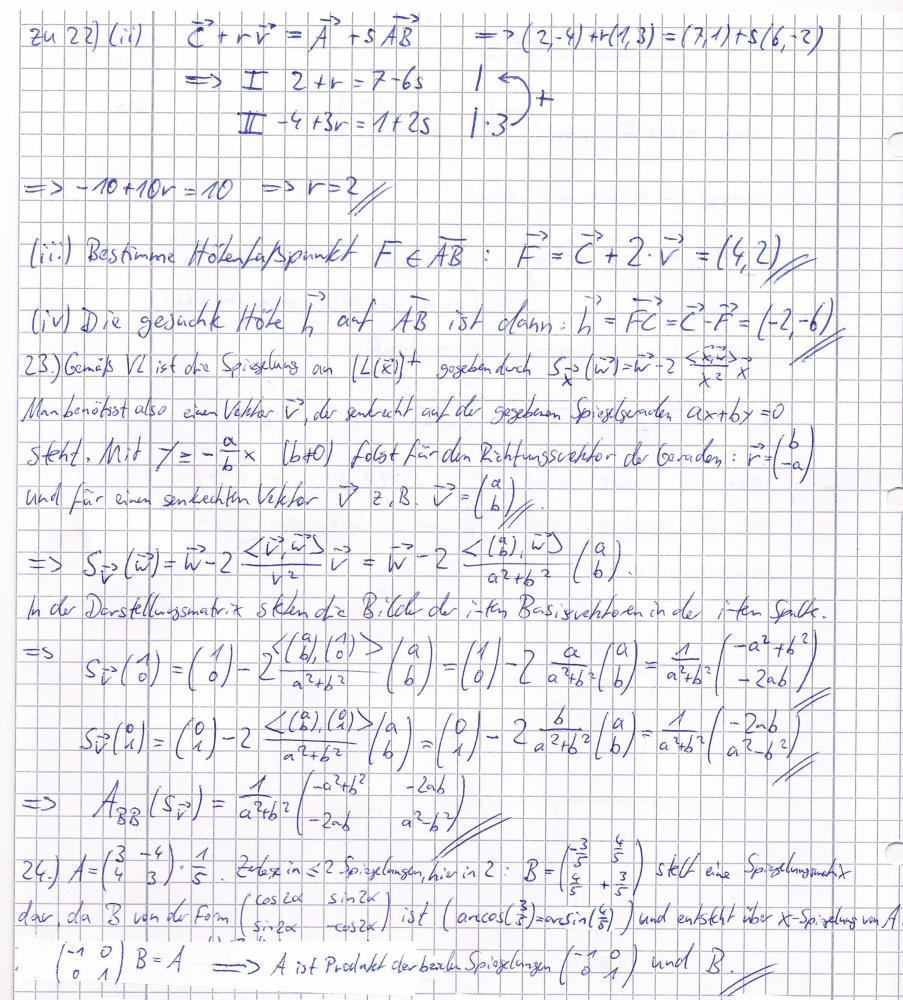 zu 22) (ii) C⃗ + r v⃗ = A⃗ + s AB⃗ => (2,-4)+r(1,3) = (7,1)+s(6,-2)
=> I 2+r = 7-6s |
II -4+3r = 1+2s |·3 +
=> -10+10r = 10 => r=2
(iii) Bestimme Höhenfußpunkt F ∈ A̅B̅ : F⃗ = C⃗ + 2·v⃗ = (4,2)
(iv) Die gesuchte Höhe h⃗ auf A̅B̅ ist dann: h⃗ = FC⃗ = C⃗-F⃗ = (-2,-6)
23.) Gemäß VL ist die Spiegelung an (L(x⃗))⊥ gegeben durch S_x⃗(w⃗) = w⃗ - 2 <x⃗,w⃗>/x² x⃗
Man benötigt also einen Vektor v⃗, der senkrecht auf der gegebenen Spiegelgeraden ax+by=0
steht. Mit y = -a/b x (b≠0) folgt für den Richtungsvektor der Geraden: r⃗ = (b -a)
und für einen senkrechten Vektor v⃗ z.B. v⃗ = (a b).
=> S_v⃗(w⃗) = w⃗ - 2 <v⃗,w⃗>/v² v⃗ = w⃗ - 2 <(a b), w⃗>/(a²+b²) (a b).
In der Darstellungsmatrix stehen die Bilder der i-ten Basisvektoren in der i-ten Spalte.
=> S_v⃗(1 0) = (1 0) - 2 <(a b), (1 0)>/(a²+b²) (a b) = (1 0) - 2 a/(a²+b²) (a b) = 1/(a²+b²) (-a²+b² -2ab)
S_v⃗(0 1) = (0 1) - 2 <(a b), (0 1)>/(a²+b²) (a b) = (0 1) - 2 b/(a²+b²) (a b) = 1/(a²+b²) (-2ab a²-b²)
=> A_BB(S_v⃗) = 1/(a²+b²) (-a²+b² -2ab -2ab a²-b²)
24.) A = (3 -4 4 3)·1/5. Zerlege in ≤ 2 Spiegelungen, hier in 2: B = (-3/5 4/5 4/5 +3/5) stellt eine Spiegelungsmatrix
dar, da B von der Form (cos2α sin2α sin2α -cos2α) ist (arccos(3/5)=arcsin(4/5)) und entsteht über x-Spiegelung von A.
(-1 0 0 1) B = A => A ist Produkt der beiden Spiegelungen (-1 0 0 1) und B.